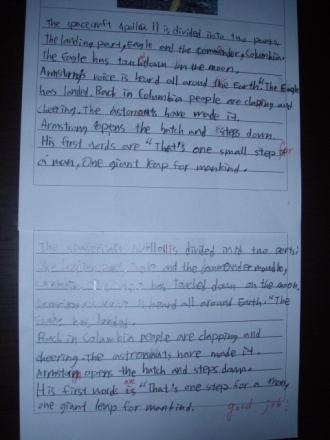 The spacecraft Apollo 11 is divided into two parts.
the landing part, Eagle and the commander, Columbia.
The Eagle has touchdown on the moon.
Armstrong's voice is heard all around the Earth. "The Eagle
has landed. Back in Columbia people are clapping and
cheering. The astronants have made it.
Armstrong opens the hatch and steps down.
His first words are "That's one small step for
a man, One giant leap for mankind.
The spacecraft is divided into two parts:
and the
has touched down on the moon.
is heard all around Earth. "The
Eagle has landed.
Back in Columbia people are clapping and
cheering. The astronauts have made it.
Armstrong opens the hatch and steps down.
His first words is are "That's one step for a man,
one giant leap for mankind. good job!